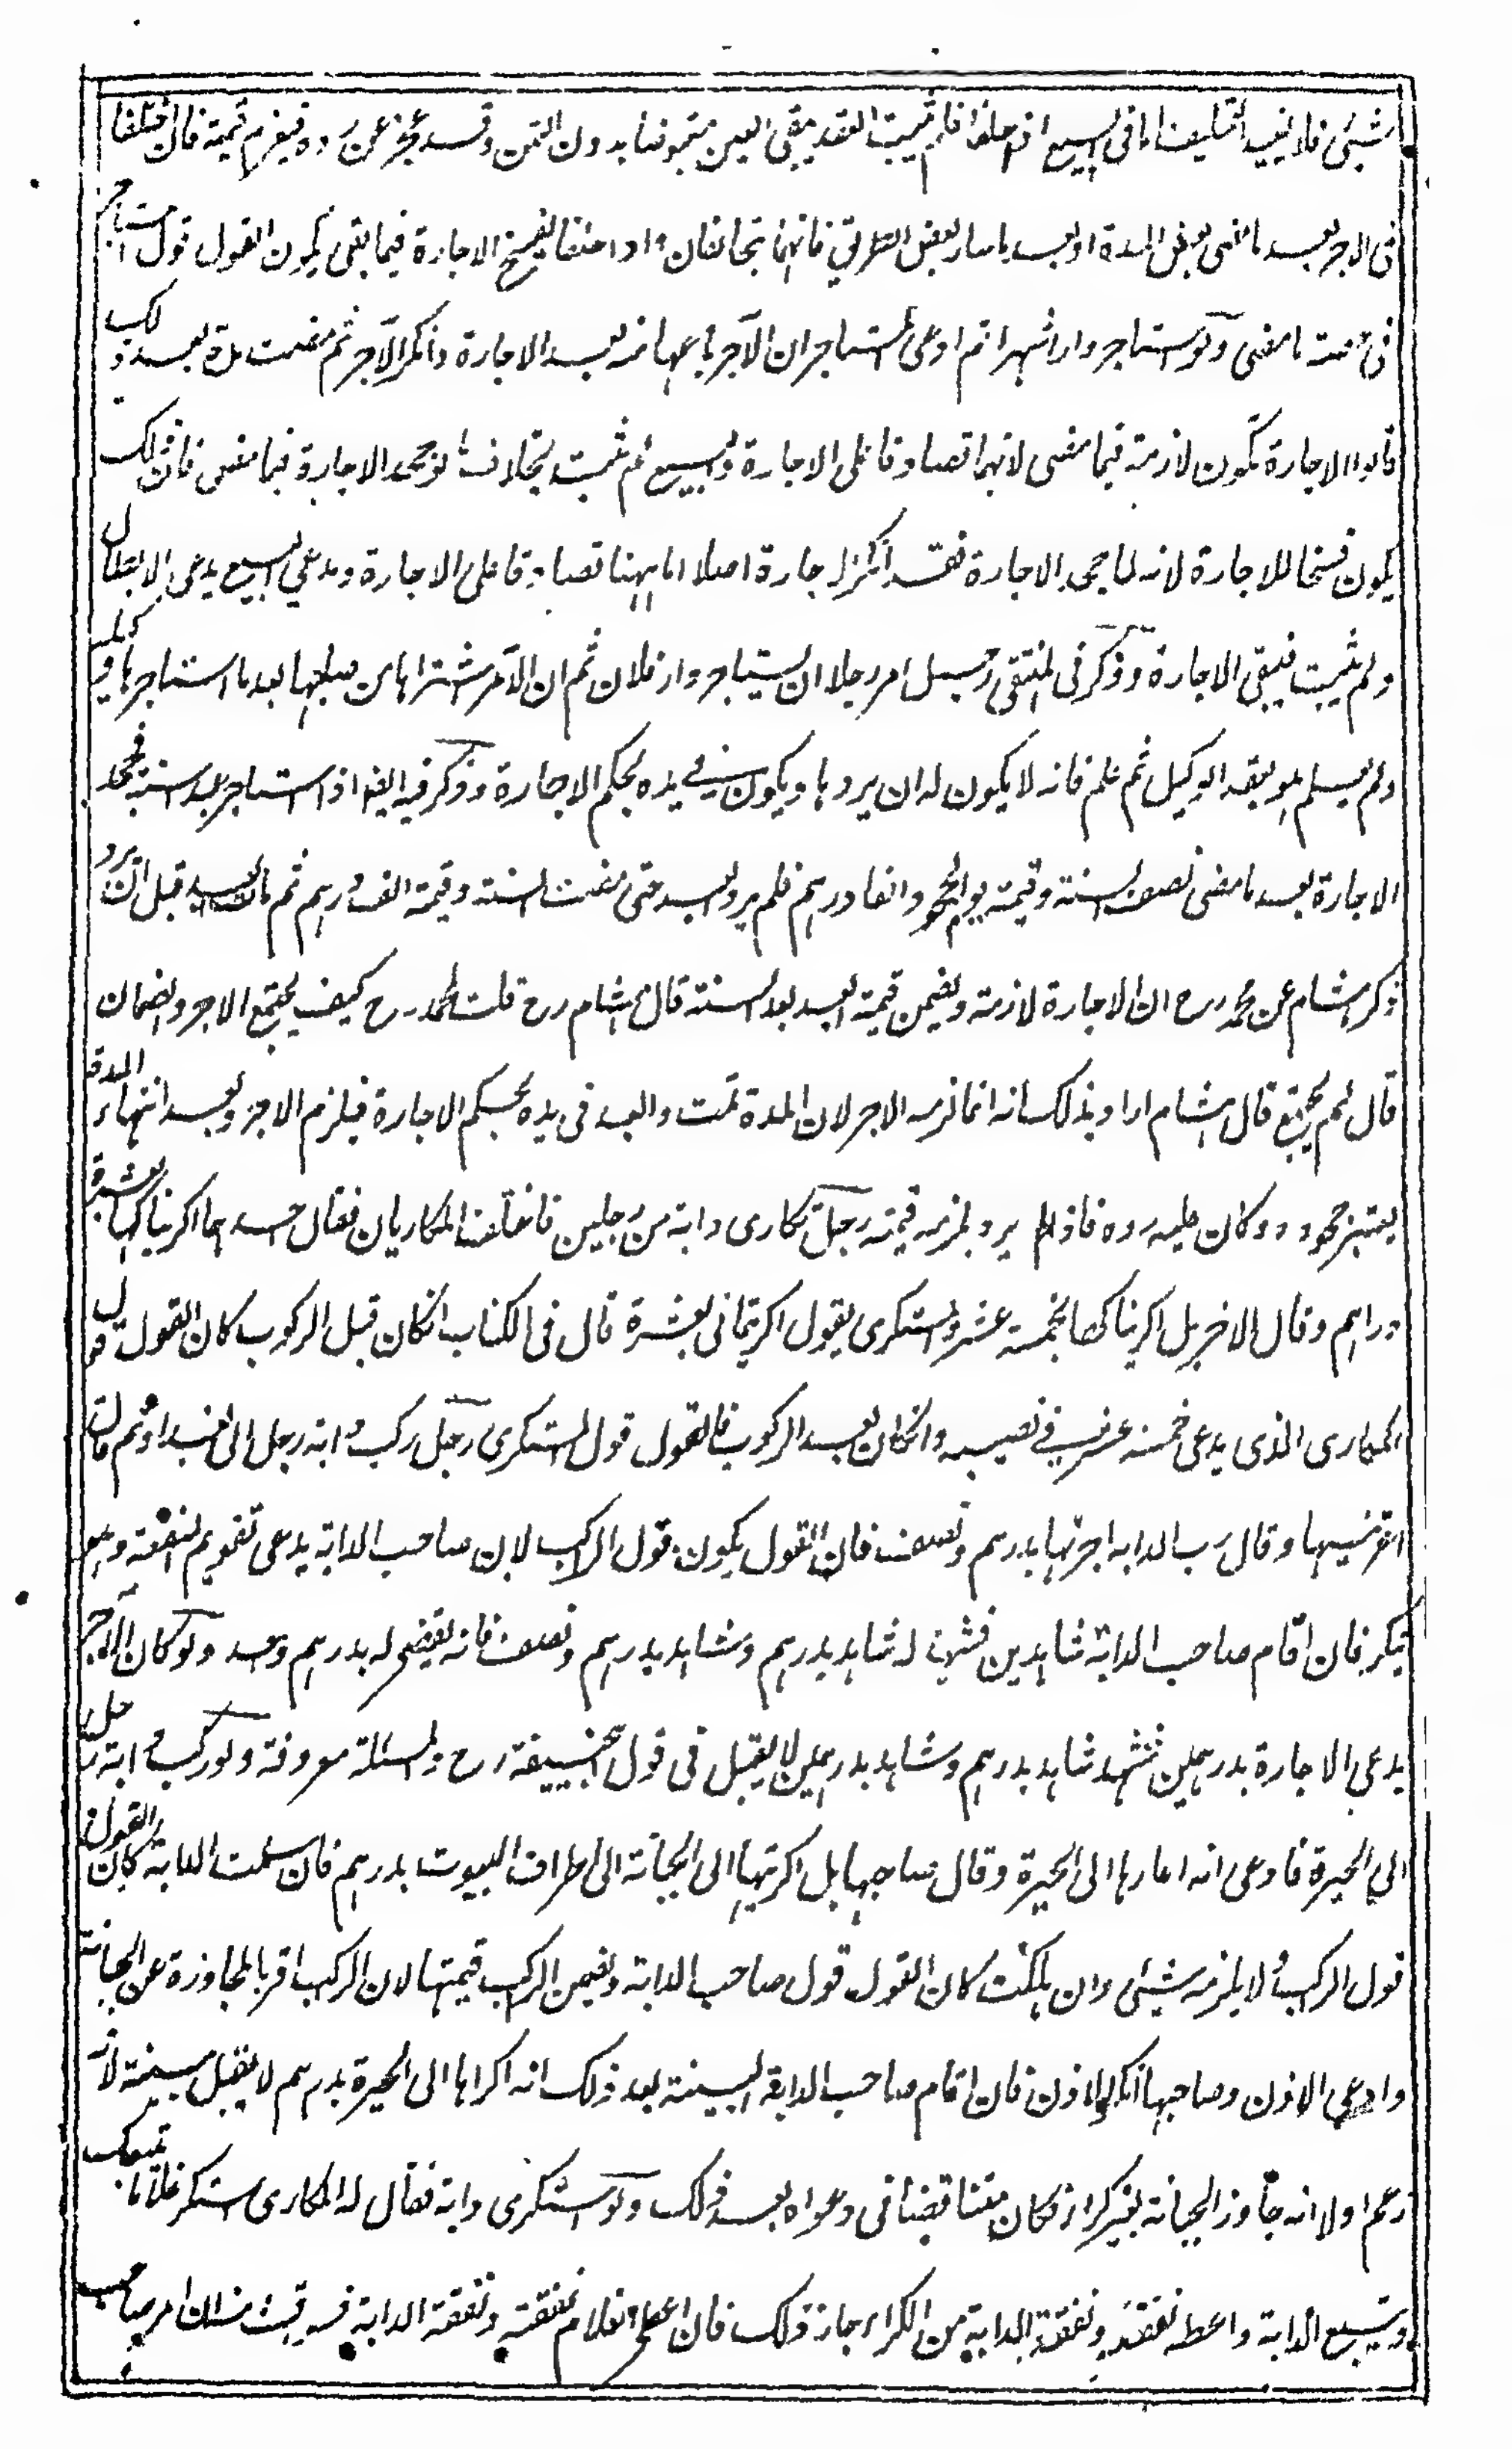 شيئ فلا يفيد التحليف اما فى البيع اذا حلفا فلم يثبت العقد يبقى العين مقبوضا بدون الثمن وقد عجز عن رده فيغرم قيمته فان اختلفا
فى الاجر بعد ما مضى بعض المدة او بعد ما سار بعض الطريق فانهما يتحالفان واذا حلفا يفسخ الاجارة فيما بقى ويكون القول قول المستاجر
فى حصة ما مضى ولو استاجر دارا شهرا ثم ادعى المستاجر ان الآجر باعها منه بعد الاجارة وانكر الآجر ثم مضت مدة بعد ذلك
قالوا الاجارة تكون لازمة فيما مضى لانهما تصادقا على الاجارة والبيع لم يثبت بخلاف ما لو جحد الاجارة فيما مضى فان ذلك
يكون فسخا للاجارة لانه لما جحد الاجارة فقد انكر الاجارة اصلا اما ههنا تصادقا على الاجارة ومدعي البيع يدعى الابطال
ولم يثبت فيبقى الاجارة وذكر فى المنتقى رجل امر رجلا ان يستاجر دار فلان ثم ان الآمر اشتراها من صاحبها بعد ما استاجرها وكيله
ولم يعلم بموافقة الوكيل ثم علم فانه لا يكون له ان يردها ويكون فى يده بحكم الاجارة وذكر فيه ايضا اذا استاجر عبدا سنة فجحد
الاجارة بعد ما مضى نصف السنة وقيمته يوم الجحود الفا درهم فلم يرد العبد حتى مضت السنة وقيمته الف درهم ثم مات العبد قبل ان يرد
ذكر هشام عن محمد رح ان الاجارة لازمة ويضمن قيمة العبد بعد السنة قال هشام رح قلت لمحمد رح كيف يجتمع الاجر والضمان
قال لم يجتمع قال هشام اراد بذلك انه انما لزمه الاجر لان المدة تمت والعبد فى يده بحكم الاجارة فيلزم الاجر وبعد انتهاء المدة
يعتبر جحوده وكان عليه رده فاذا لم يرد يلزمه قيمته رجل تكارى دابة من رجلين فاختلف المكاريان فقال احدهما اكريناكها بعشرة
دراهم وقال الاخر بل اكريناكها بخمسة عشر والمستكرى يقول اكريتمانى بعشرة قال فى الكتاب ان كان قبل الركوب كان القول قول
المكارى الذى يدعى خمسة عشر فى نصيبه وان كان بعد الركوب فالقول قول المستكرى رجل ركب دابة رجل الى بغداد ثم قال
اعرتنيها وقال رب الدابة اجرتها بدرهم ونصف فان القول يكون قول الراكب لان صاحب الدابة يدعى تقويم المنفعة وهو
ينكر فان اقام صاحب الدابة شاهدين فشهد له شاهد بدرهم وشاهد بدرهم ونصف فانه يقضى له بدرهم واحد ولو كان الآجر
يدعى الاجارة بدرهمين فشهد شاهد بدرهم وشاهد بدرهمين لا يقبل فى قول ابى حنيفة رح والمسئلة معروفة ولو ركب دابة رجل
الى الحيرة فادعى انه اعارها الى الحيرة وقال صاحبها بل اكريتها الى الجبانة الى اطراف البيوت بدرهم فان سلمت الدابة كان القول
قول الراكب ولا يلزمه شيئ وان هلكت كان القول قول صاحب الدابة ويضمن الراكب قيمتها لان الراكب اقر بالمجاوزة عن الجبانة
وادعى الاذن وصاحبها انكر الاذن فان اقام صاحب الدابة البينة بعد ذلك انه اكراها الى الحيرة بدرهم لا يقبل بينته لانه
زعم اولا انه جاوز الجبانة بغير كراء فكان متناقضا فى دعواه بعد ذلك ولو استكرى دابة فقال له المكارى استكر غلاما يتبعك
ويتبع الدابة واعطه نفقته ونفقة الدابة من الكراء جاز ذلك فان اعطى الغلام نفقته ونفقة الدابة فسرقت منه ان امر صاحب